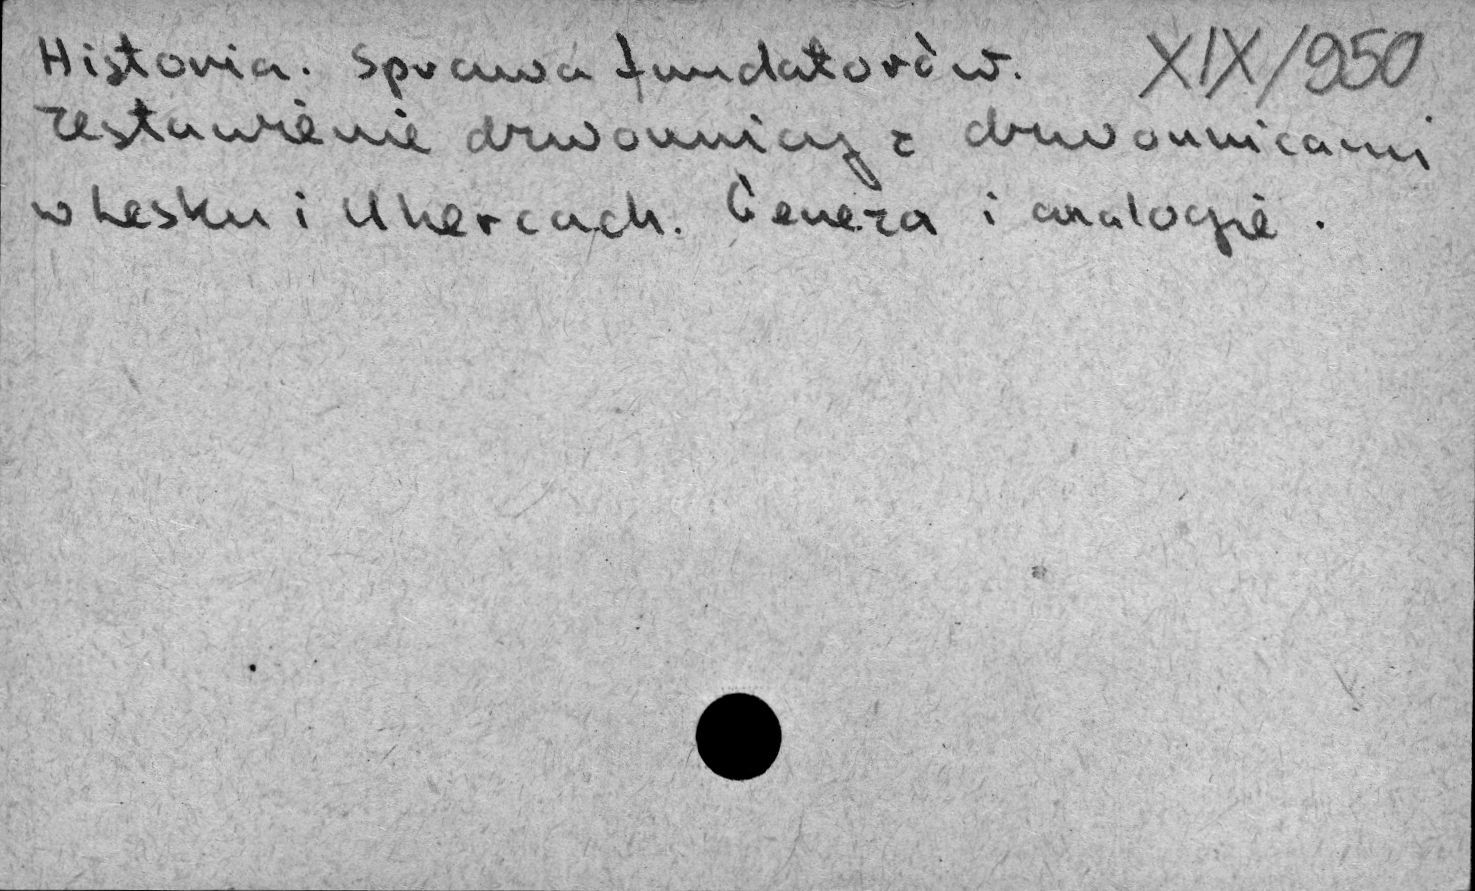 Historia. Sprawa fundatorów. XIX/950
Zestawienie dzwonnicy z dzwonnicami
w Lesku i Uhercach. Geneza i analogie.